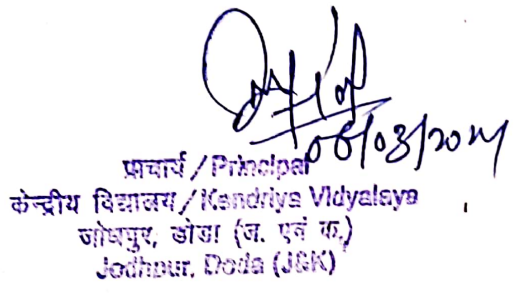 06/03/2024
प्राचार्य / Principal
केन्द्रीय विद्यालय / Kendriya Vidyalaya
जोधपुर, डोडा (ज. एवं क.)
Jodhpur, Doda (J&K)